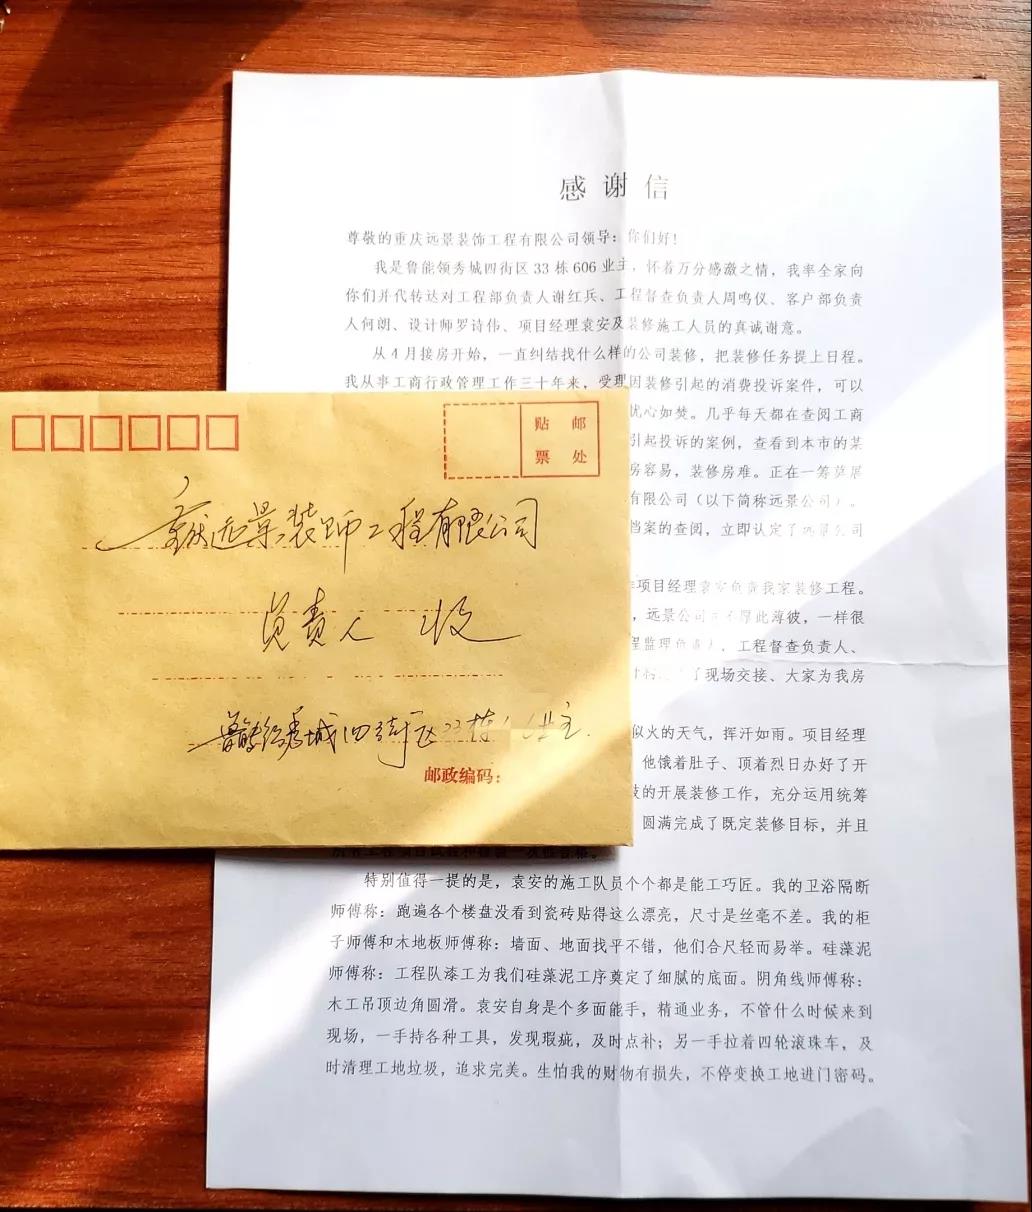 感谢信
尊敬的重庆远景装饰工程有限公司领导：你们好！
我是鲁能领秀城四街区33栋606业主，怀着万分感激之情，我率全家向
你们并代转达对工程部负责人谢红兵、工程督查负责人周鸣仪、客户部负责
人何朗、设计师罗诗伟、项目经理袁安及装修施工人员的真诚谢意。
从4月接房开始，一直纠结找什么样的公司装修，把装修任务提上日程。
我从事工商行政管理工作三十年来，受理因装修引起的消费投诉案件，可以
忧心如焚。几乎每天都在查阅工商
引起投诉的案例，查看到本市的某
房容易，装修房难。正在一筹莫展
有限公司（以下简称远景公司）。
档案的查阅，立即认定了远景公司
项目经理袁安负责我家装修工程。
，远景公司并不厚此薄彼，一样很
程监理负责人、工程督查负责人、
了现场交接、大家为我房
似火的天气，挥汗如雨。项目经理
他饿着肚子、顶着烈日办好了开
的开展装修工作，充分运用统筹
圆满完成了既定装修目标，并且
特别值得一提的是，袁安的施工队员个个都是能工巧匠。我的卫浴隔断
师傅称：跑遍各个楼盘没看到瓷砖贴得这么漂亮，尺寸是丝毫不差。我的柜
子师傅和木地板师傅称：墙面、地面找平不错，他们合尺轻而易举。硅藻泥
师傅称：工程队漆工为我们硅藻泥工序奠定了细腻的底面。阴角线师傅称：
木工吊顶边角圆滑。袁安自身是个多面能手，精通业务，不管什么时候来到
现场，一手持各种工具，发现瑕疵，及时点补；另一手拉着四轮滚珠车，及
时清理工地垃圾，追求完美。生怕我的财物有损失，不停变换工地进门密码。
贴 邮
票 处
重庆远景装饰工程有限公司
负责人 收
鲁能领秀城四街区33栋 业主
邮政编码：